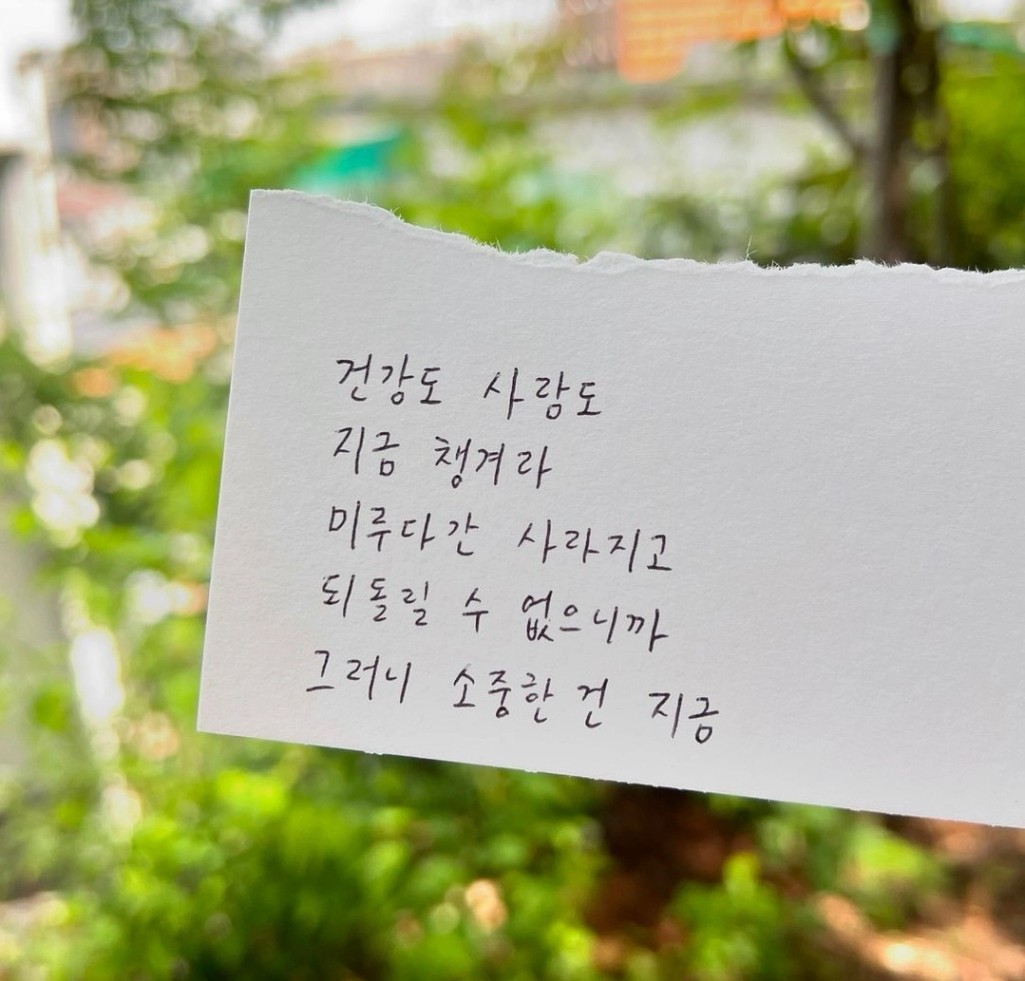 건강도 사람도
지금 챙겨라
미루다간 사라지고
되돌릴 수 없으니까
그러니 소중한 건 지금